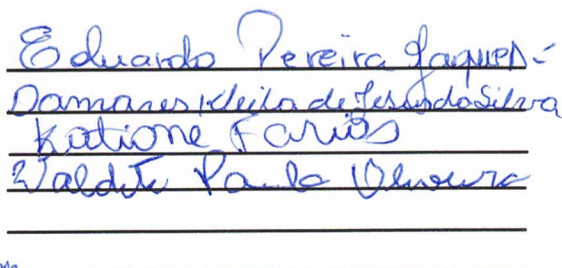 Eduardo Pereira Jaques
Damares Kleila de Jesus da Silva
Katione Farias
Waldete Paula Oliveira